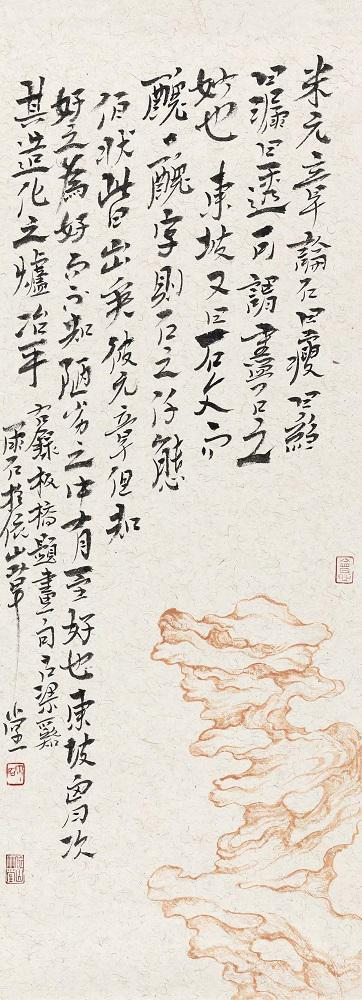 米元章論石曰瘦曰縐
曰漏曰透可謂盡石之
妙也東坡又曰石文而
醜一醜字則石之千態
狀皆出矣彼元章但知
好之為好而不知陋劣之中有至好也東坡胸次
其造化之爐冶乎
右錄板橋題畫句石梁谿
石於山草堂